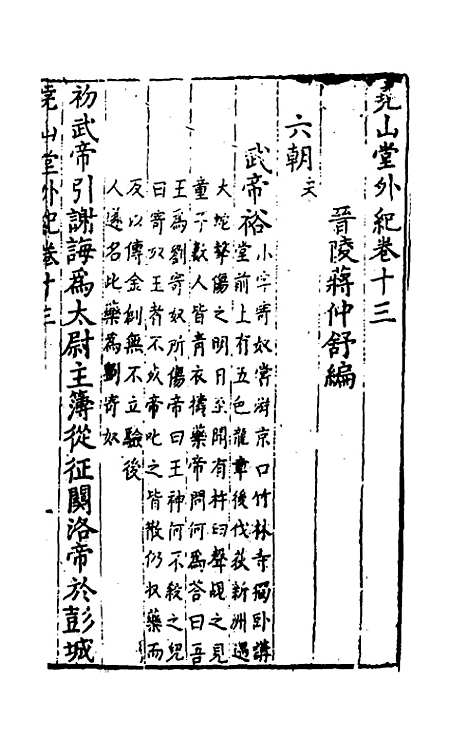 堯山堂外紀卷十三
晉陵蔣仲舒編
六朝 宋
武帝裕 小字寄奴嘗游京口竹林寺獨臥講
堂前上有五色龍章後伐荻新洲遇
大蛇擊傷之明日至聞有杵臼聲覘之見
童子數人皆青衣擣藥帝問何爲答曰吾
王爲劉寄奴所傷帝曰王神何不殺之兒
曰寄奴王者不死帝叱之皆散仍收藥而
反以傳金創無不立驗後
人遂名此藥爲劉寄奴
初武帝引謝誨爲太尉主簿從征關洛帝於彭城
堯山堂外紀卷十三